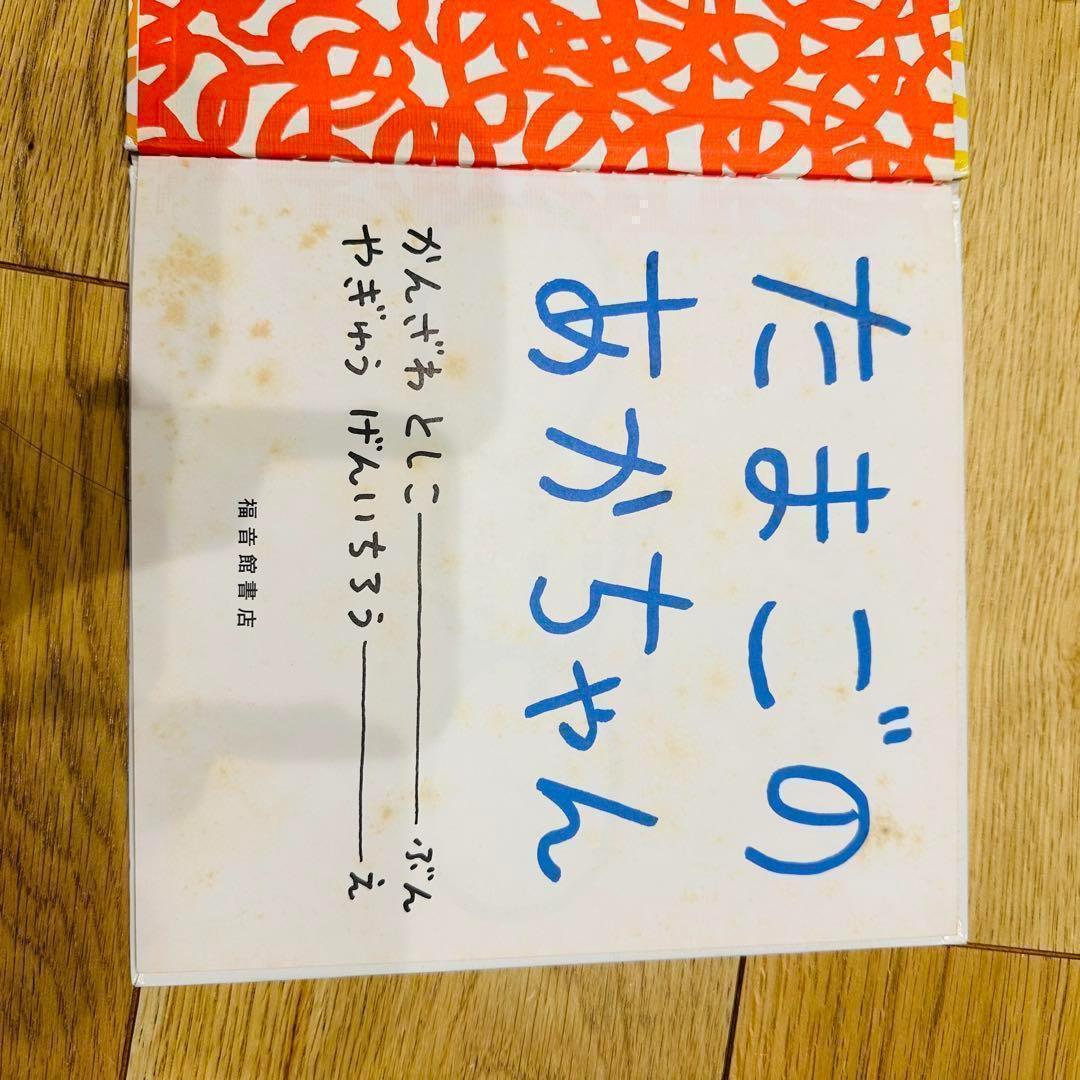 たまごの
あかちゃん
かんざわ としこ――ぶん
やぎゅう げんいちろう――え
福音館書店